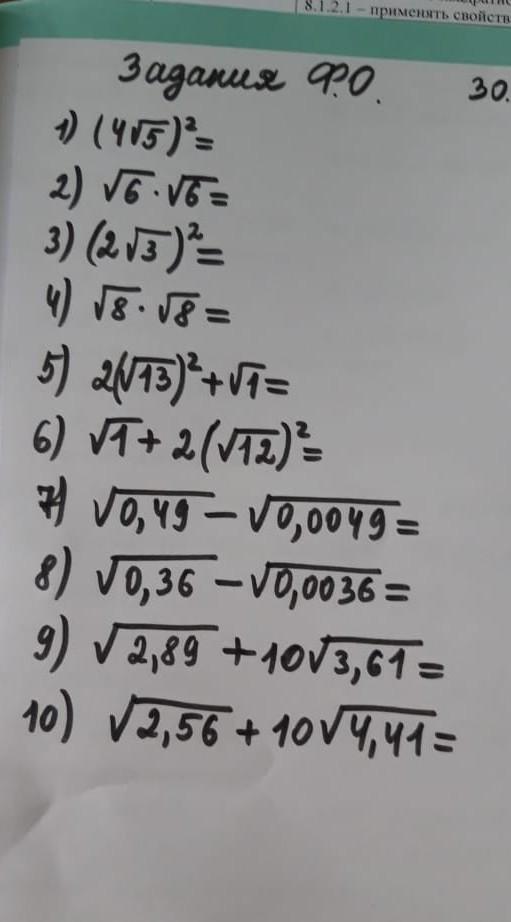 8.1.2.1 – применять свойств
Задания Ф.О. 30.
1) (4√5)²=
2) √6·√6=
3) (2√3)²=
4) √8·√8=
5) 2(√13)²+√1=
6) √1+2(√12)²=
7) √0,49-√0,0049=
8) √0,36-√0,0036=
9) √2,89+10√3,61=
10) √2,56+10√4,41=